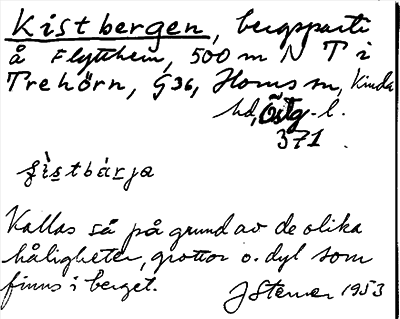 Kistbergen, bergsparti
å Flytthem, 500 m N T i
Trehörn, G36, Horns sn, Kinda
hd, Östg. l.
371.
Kallas så på grund av de olika
håligheter, grottor o. dyl som
finns i berget.
J Sterner 1953